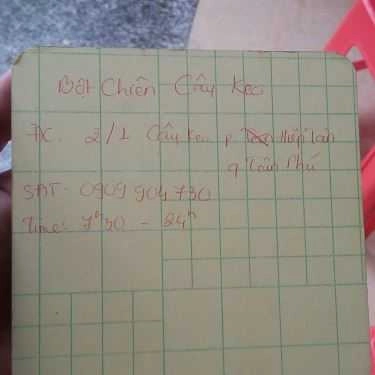 Bột Chiên Cây Keo
ĐC. 2/1 Cây Keo p. Hiệp Tân
q Tân Phú
SĐT: 0909 904 730
Time: 7h30 - 24h